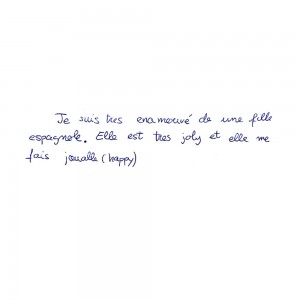 Je suis tres enamouvé de une fille
espagnole. Elle est tres joly et elle me
fais joualle (happy)